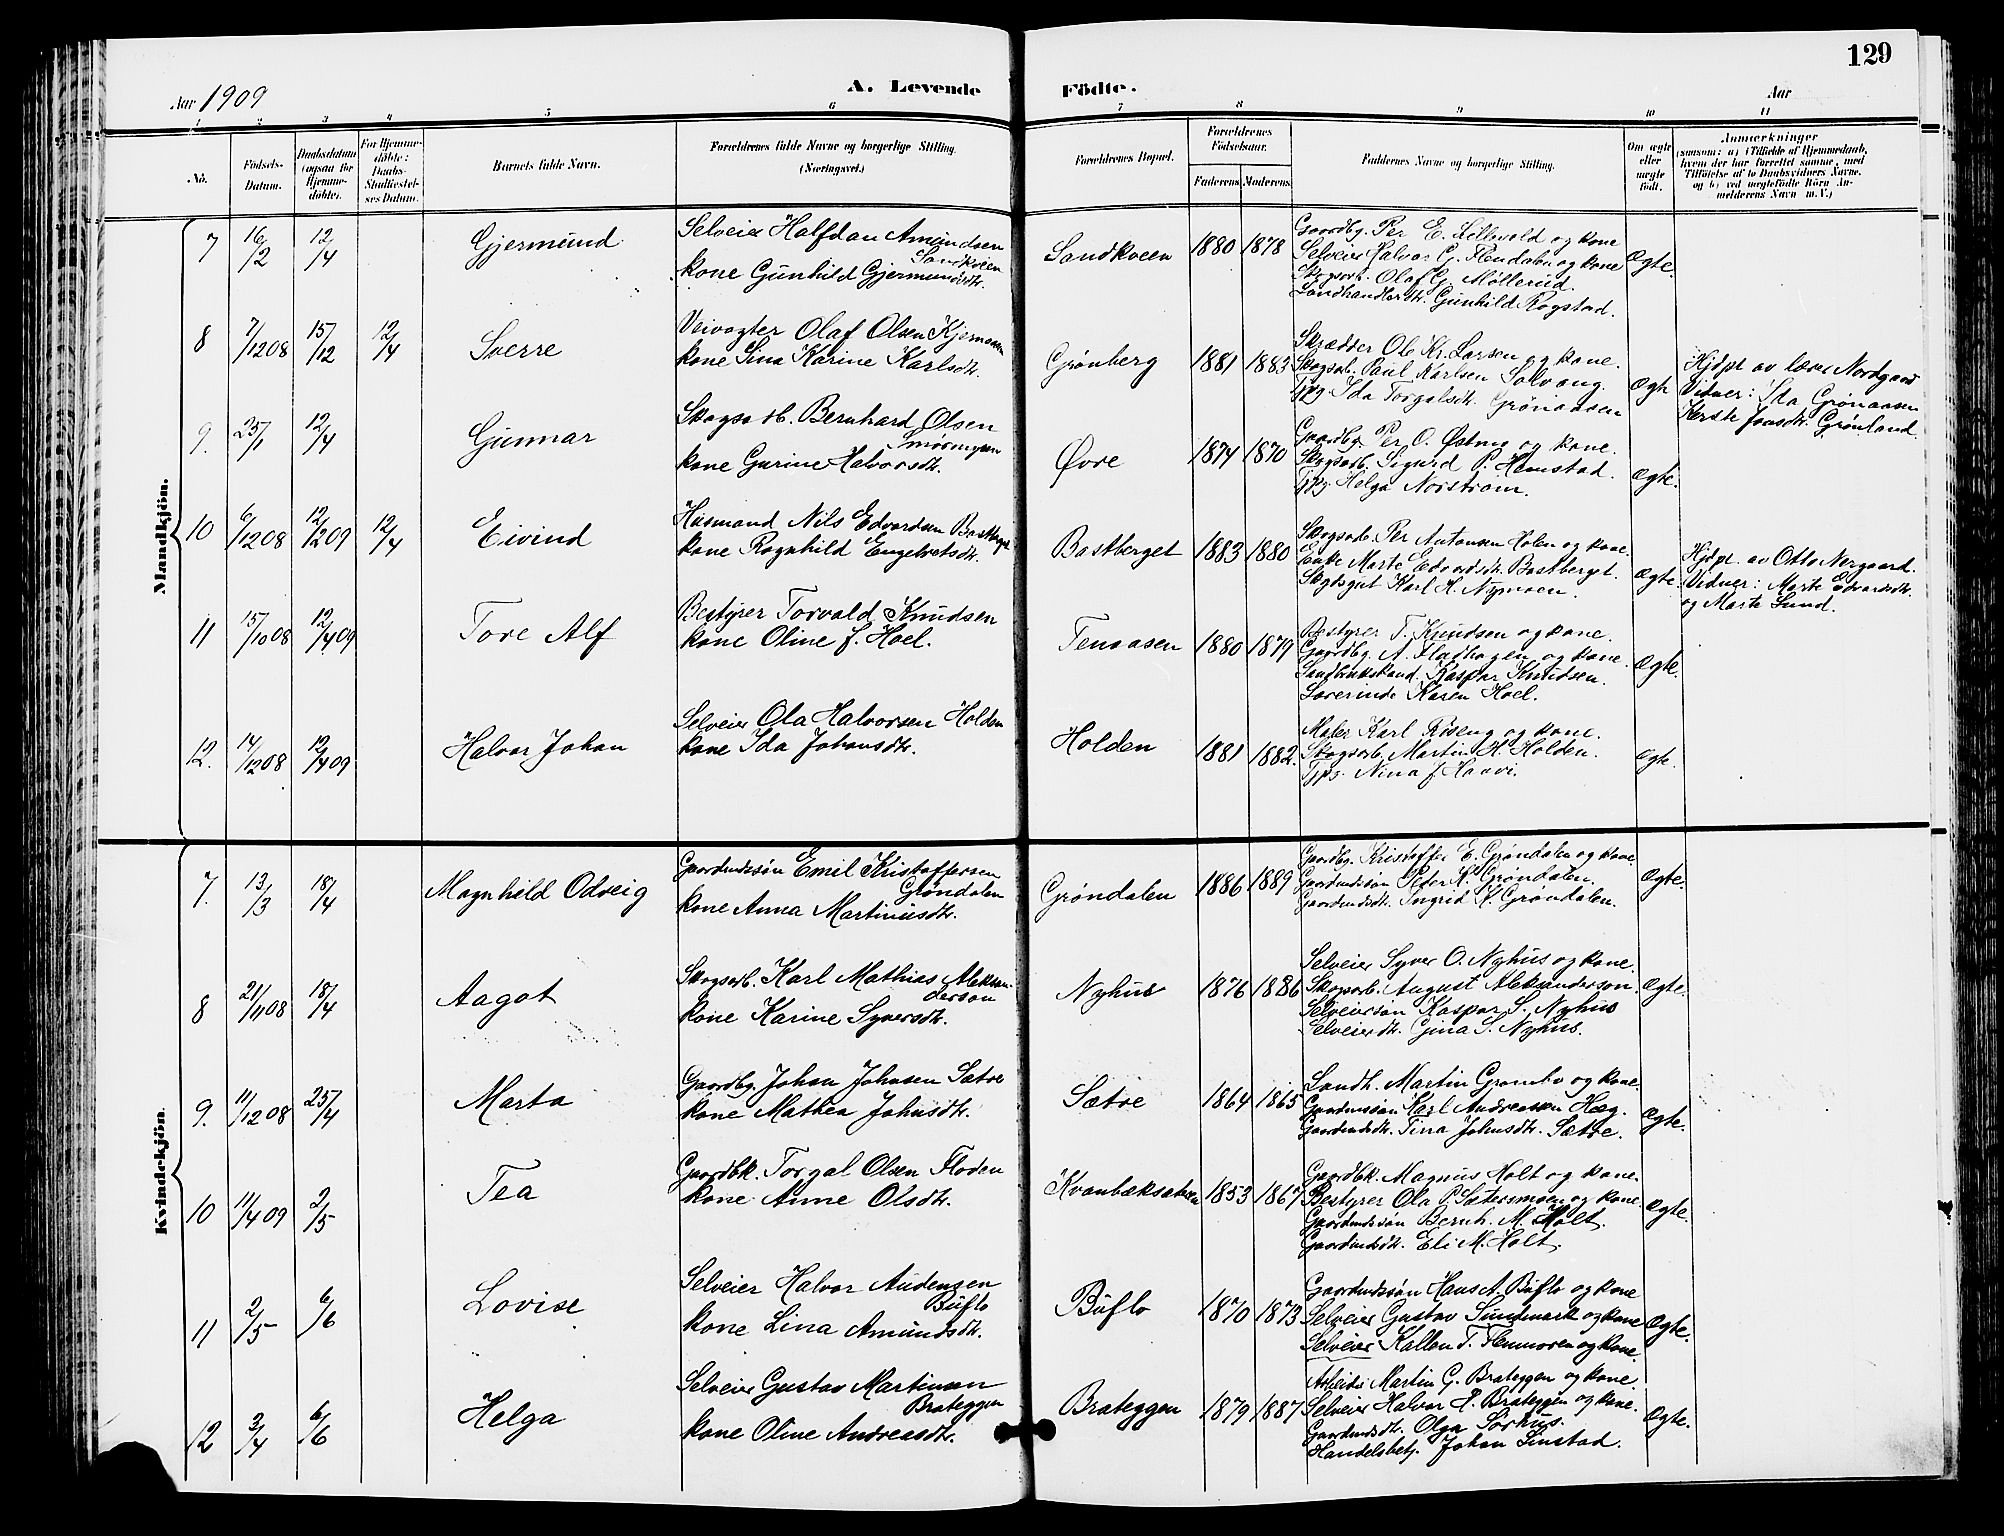 129
Aar 1909
A. Levende Födte.
Aar
1 2 3 4 5 6 7 8 9 10 11
No.
Födsels-Datum.
Daabsdatum (ogsaa for Hjemme-döbte).
For Hjemme-döbte: Daabs-Stadfæstel-ses Datum.
Barnets fulde Navn.
Forældrenes fulde Navne og borgerlige Stilling. (Næringsvei.)
Forældrenes Bopæl.
Forældrenes Födselsaar.
Faderens Moderens
Faddernes Navne og borgerlige Stilling.
Om ægte eller uægte födt.
Anmærkninger
(saasom: a) i Tilfælde af Hjemmedaab, hvem der har forrettet samme, med Tilföielse af to Daabsvidners Navne. og b) ved uægtefödte Börn Anmelderens Navn m. V.)
Mandkjön.
7 16/2 12/4 Gjermund
Selveier Halfdan Amundsen Sandkveen
kone Gunhild Gjermundsdtr.
Sandkveen 1880 1878
Gaardbg. Per E. Lillevold og kone
Selveier Halvor G. Flendalen og kone
Skogsarb. Olaf G. Møllerud.
Landhandlerdtr. Gunhild Rogstad.
Ægte.
8 7/12 08 15/12 12/4 Sverre
Veivogter Olaf Olsen Kjernaasen
kone Sina Karine Karlsdtr.
Grønberg 1881 1883
Skrædder Ole Kr. Larsen og kone.
Skogsarb. Paul Karlsen Solvang.
Tjpg. Ida Torgalsdtr. Grønaasen
Ægte
Hjdpt av lærer Nordgaard
Vidner: Ida Grønaasen
Kerste Jonsdtr. Grønland.
9. 25/1 12/4 Gunnar
Skogsarb. Bernhard Olsen Smørmyren
kone Gurine Halvorsdtr.
Øvre 1874 1870
Gaardbg. Per O. Østmo og kone.
Skogsarb. Sigurd P. Hemstad.
Tjpg. Helga Norstrøm.
Ægte.
10 6/12 08 12/12 09 12/4 Eivind
Husmand Nils Edvardsen Bastberget
kone Ragnhild Engebretsdtr.
Bastberget 1883 1880
Skogsarb. Per Antonsen Holen og kone.
Enke Marte Edvardsdtr. Bastberget.
Skydsgut Karl H. Nymoen.
Ægte.
Hjdpt. av Otto Nergaard.
Vidner: Marte Edvardsdtr.
og Marte Lund.
11 15/10 08 12/4 09 Tore Alf
Bestyrer Torvald Knudsen
kone Oline J. Hoel.
Tenaasen 1880 1879
Bestyrer T. Knudsen og kone.
Gaardbg. A. Fladhagen og kone.
Landbrukskand. Kaspar Knudsen.
Lærerinde Karen Hoel.
Ægte.
12. 14/12 08 12/4 09 Halvor Johan
Selveier Ola Halvorsen Holden
kone Ida Johansdtr.
Holden 1881 1882.
Maler Karl Røseng og kone.
Skogsarb. Martin H. Holden.
Tjpg. Nina J. Haavi.
Ægte.
Kvindekjön.
7. 13/3 18/4 Magnhild Odveig
Gaardmdssøn Emil Kristoffersen Grøndalen
kone Anna Martinusdtr.
Grøndalen 1886 1889
Gaardbg. Kristoffer E. Grøndalen og kone.
Gaardmdssøn Peter K. Grøndalen.
Gaardmdsdtr. Ingrid K. Grøndalen.
Ægte.
8 21/11 08 18/4 Aagot
Skogsarb. Karl Mathias Aleksanderson
kone Karine Syversdtr.
Nyhus 1876 1886
Selveier Syver O. Nyhus og kone.
Skogsarb. August Aleksanderson.
Selveiersøn Kaspar S. Nyhus
Selveierdtr. Gina S. Nyhus.
Ægte.
9. 11/12 08 25/4 Marta
Gaardbg. Johan Johnsen Sætre
kone Mathea Johnsdtr.
Sætre 1864 1865
Landh. Martin Grambo og kone.
Gaardmdssøn Karl Andreassen Hæg.
Gaardmdsdtr. Tina Johnsdtr. Sætre.
Ægte.
10 11/4 09 2/5 Tea
Gaardbk. Torgal Olsen Floden
kone Anne Olsdtr.
Kvanbæksæteren 1853 1867
Gaardbk. Magnus Holt og kone.
Bestyrer Ola P. Sætersmoen og kone.
Gaardmdssøn Bernh. M. Holt.
Gaardmdsdtr. Eli M. Holt.
Ægte.
11 2/5 6/6 Lovise
Selveier Halvor Audensen Buflo
kone Lina Amundsdtr.
Buflo 1870 1873
Gaardmdssøn Hans A. Buflo og kone
Selveier Gustav Sundmark og kone
Selveier Kallen T. Flenmoren og kone.
Ægte.
12 3/4 6/6 Helga
Selveier Gustav Martinsen Brateggen
kone Oline Andreasdtr.
Brateggen 1879 1887
Arbeider Martin G. Brateggen og kone.
Selveier Halvor P. Brateggen og kone.
Gaardmdsdtr. Olga Sørhus.
Handelsbetj. Johan Linstad.
Ægte.